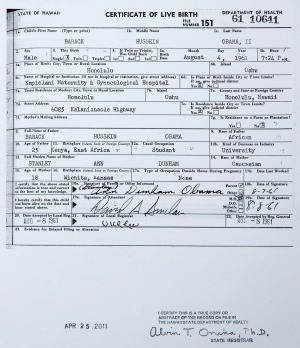 STATE OF HAWAII
CERTIFICATE OF LIVE BIRTH
DEPARTMENT OF HEALTH
FILE NUMBER 151
61 10641
1a. Child's First Name (Type or print)
1b. Middle Name
1c. Last Name
BARACK HUSSEIN OBAMA, II
2. Sex
3. This Birth
4. If Twin or Triplet, Was Child Born
5a. Birth Date
Month Day Year
5b. Hour
Male August 4, 1961 7:24 P.M.
6a. Place of Birth: City, Town or Rural Location
6b. Island
Honolulu Oahu
6c. Name of Hospital or Institution (If not in hospital or institution, give street address)
6d. Is Place of Birth Inside City or Town Limits?
Kapiolani Maternity & Gynecological Hospital
7a. Usual Residence of Mother: City, Town or Rural Location
7b. Island
7c. County and State or Foreign Country
Honolulu Oahu Honolulu, Hawaii
7d. Street Address
7e. Is Residence Inside City or Town Limits?
6085 Kalanianaole Highway
7f. Mother's Mailing Address
7g. Is Residence on a Farm or Plantation?
8. Full Name of Father
9. Race of Father
BARACK HUSSEIN OBAMA African
10. Age of Father
11. Birthplace
12a. Usual Occupation
12b. Kind of Business or Industry
25 Kenya, East Africa Student University
13. Full Maiden Name of Mother
14. Race of Mother
STANLEY ANN DUNHAM Caucasian
15. Age of Mother
16. Birthplace
17a. Type of Occupation Outside Home During Pregnancy
17b. Date Last Worked
18 Wichita, Kansas None
I certify that the above stated information is true and correct to the best of my knowledge.
18a. Signature of Parent or Other Informant
18b. Date of Signature
Dunham Obama
8-7-61
I hereby certify that this child was born alive on the date and hour stated above.
19a. Signature of Attendant
19b. Date of Signature
David A Sinclair
8-8-61
20. Date Accepted by Local Reg.
21. Signature of Local Registrar
22. Date Accepted by Reg. General
AUG -8 1961
AUG -8 1961
23. Evidence for Delayed Filing or Alteration
APR 25 2011
I CERTIFY THIS IS A TRUE COPY OR
ABSTRACT OF THE RECORD ON FILE IN
THE HAWAII STATE DEPARTMENT OF HEALTH
Alvin T. Onaka, Ph.D.
STATE REGISTRAR